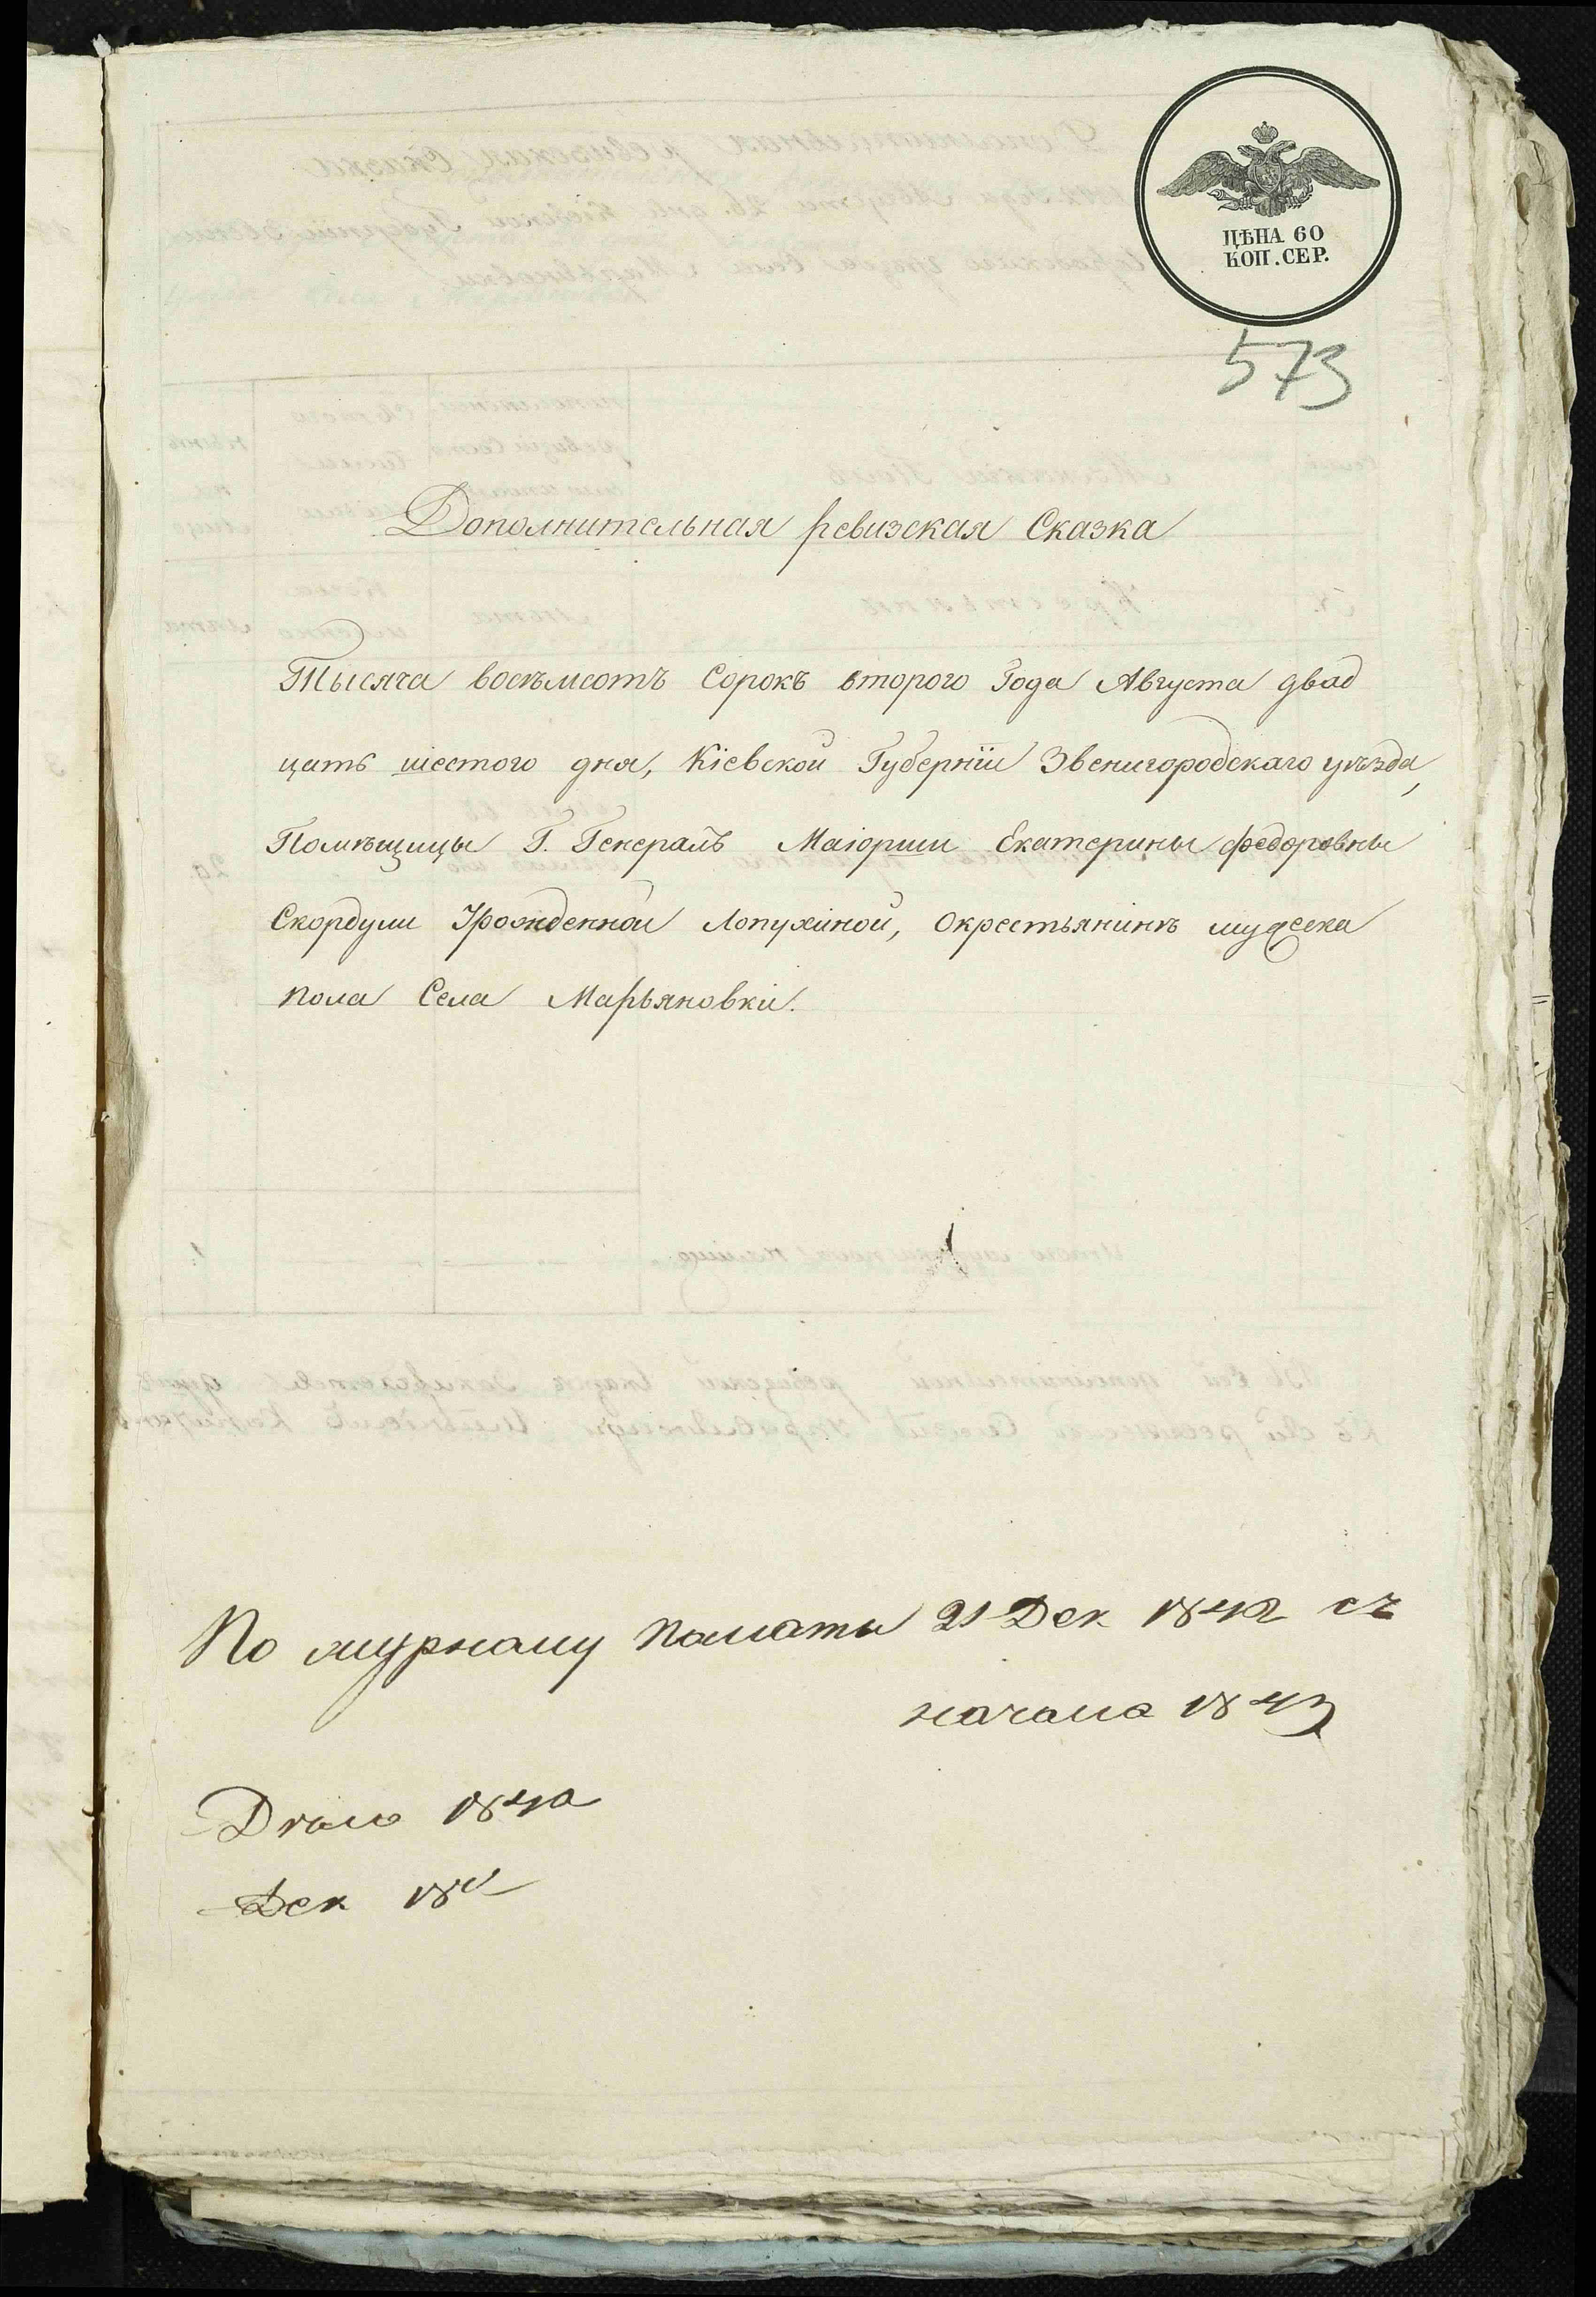 ЦѢНА 60
КОП. СЕР.
573
Дополнительная ревизская Сказка
Тысяча восѣмсотъ Сорокъ второго Года Августа двад
цать шестого дня, Кіевской Губерніи Звенигородскаго уѣзда,
Помѣщицы Г. Генералъ Маіорши Екатерины Федоровны
Скордули Урожденной Лопухиной, Окрестьянинѣ мужеска
пола Села Марьяновки.
По журналу Палаты 21 Дек 1842 съ
начала 1843
Дѣло 1842
Дек